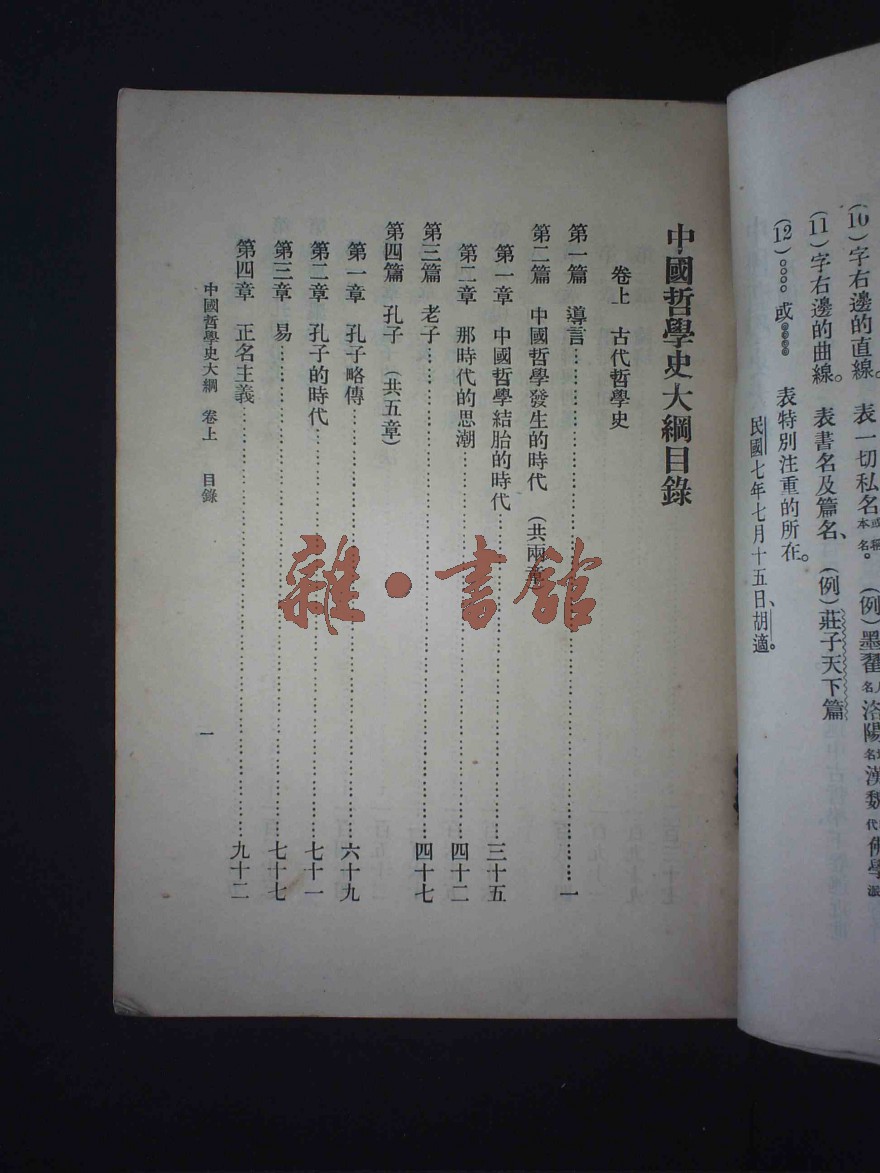 (10) 字右邊的直線。 表一切私名 或種本名。 (例) 墨翟 人名 洛陽 地名 漢魏 代 佛學 派
(11) 字右邊的曲線。 表書名及篇名、 (例) 莊子天下篇
(12) 。。。。 或 ◎◎◎◎ 表特別注重的所在。
民國七年七月十五日、胡適。
中國哲學史大綱目錄
卷上 古代哲學史
第一篇 導言……一
第二篇 中國哲學發生的時代 (共兩章)
第一章 中國哲學結胎的時代……三十五
第二章 那時代的思潮……四十二
第三篇 老子……四十七
第四篇 孔子 (共五章)
第一章 孔子略傳……六十九
第二章 孔子的時代……七十一
第三章 易……七十七
第四章 正名主義……九十二
中國哲學史大綱 卷上 目錄
一
雜·書館